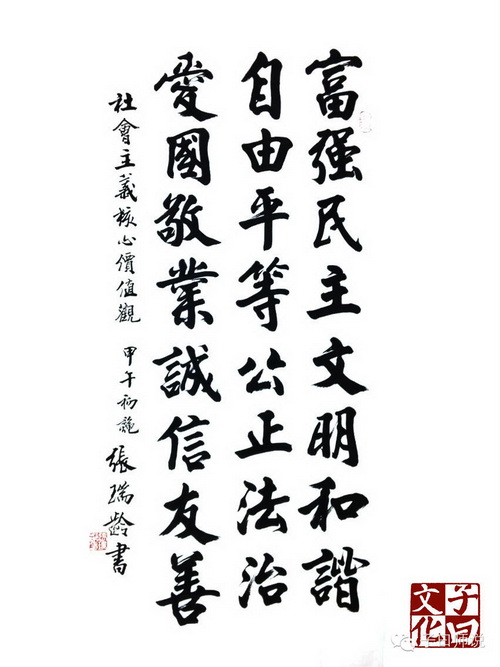 富强民主文明和諧
自由平等公正法治
愛國敬業誠信友善
社會主義核心價值觀 甲午初 張瑞齡書
子曰文化